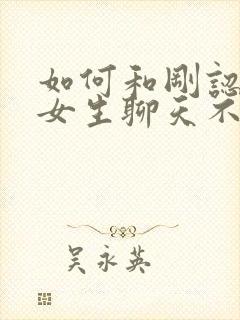 如何和剛認
女生聊天不
吳永英